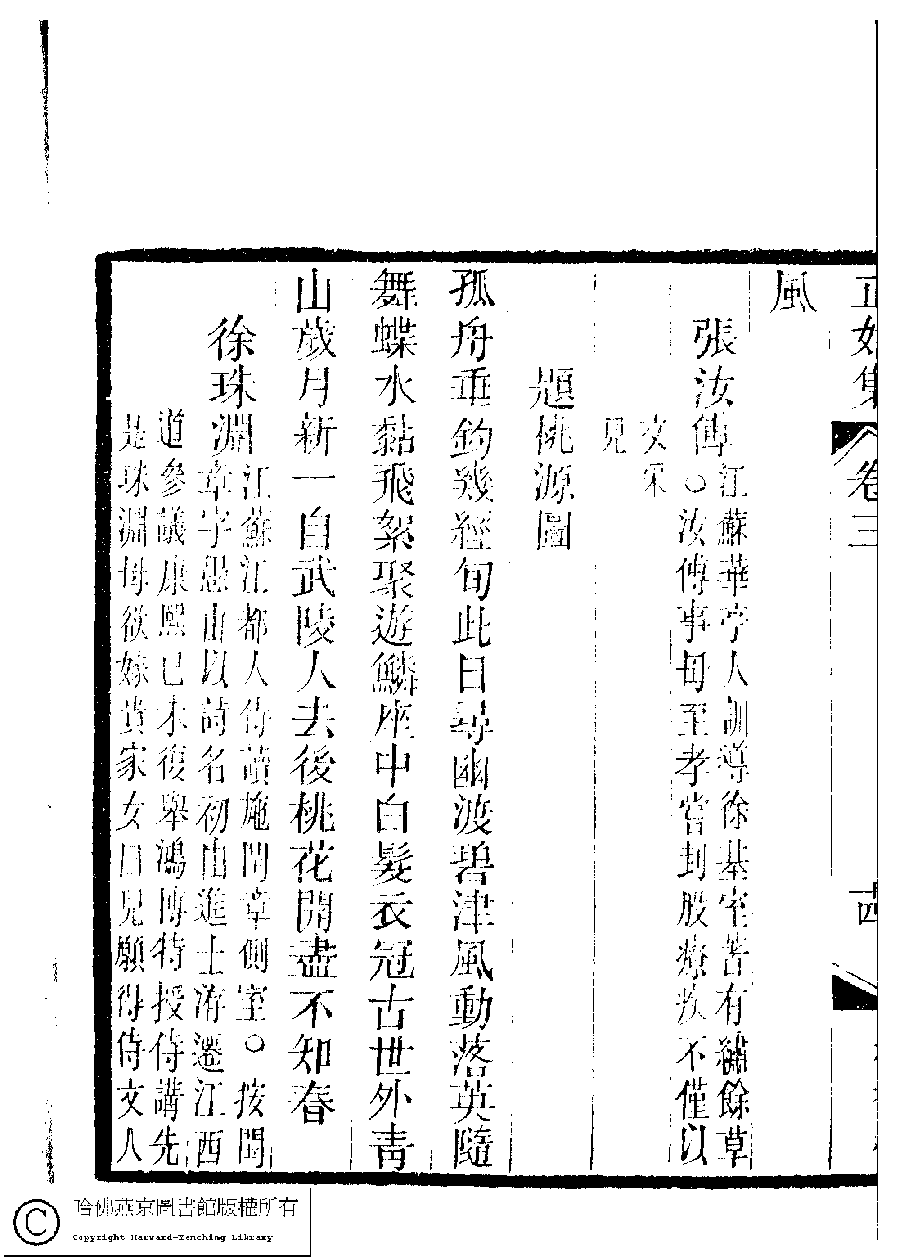 正始集 卷三 十四
風
張汝傳
江蘇華亭人訓導徐基室著有繡餘草
○汝傳事母至孝嘗刲股療疾不僅以
文采
見
題桃源圖
孤舟垂釣幾經旬此日尋幽渡碧津風動落英隨
舞蝶水黏飛絮聚遊鱗座中白髮衣冠古世外青
山歲月新一自武陵人去後桃花開盡不知春
徐珠淵
江蘇江都人侍讀施閏章側室○按閏
章字愚山以詩名初由進士洊遷江西
道參議康熙己未復舉鴻博特授侍講先
是珠淵母欲嫁貴家女曰兒願得侍文人
哈佛燕京圖書館版權所有
Copyright Harvard-Yenching Library